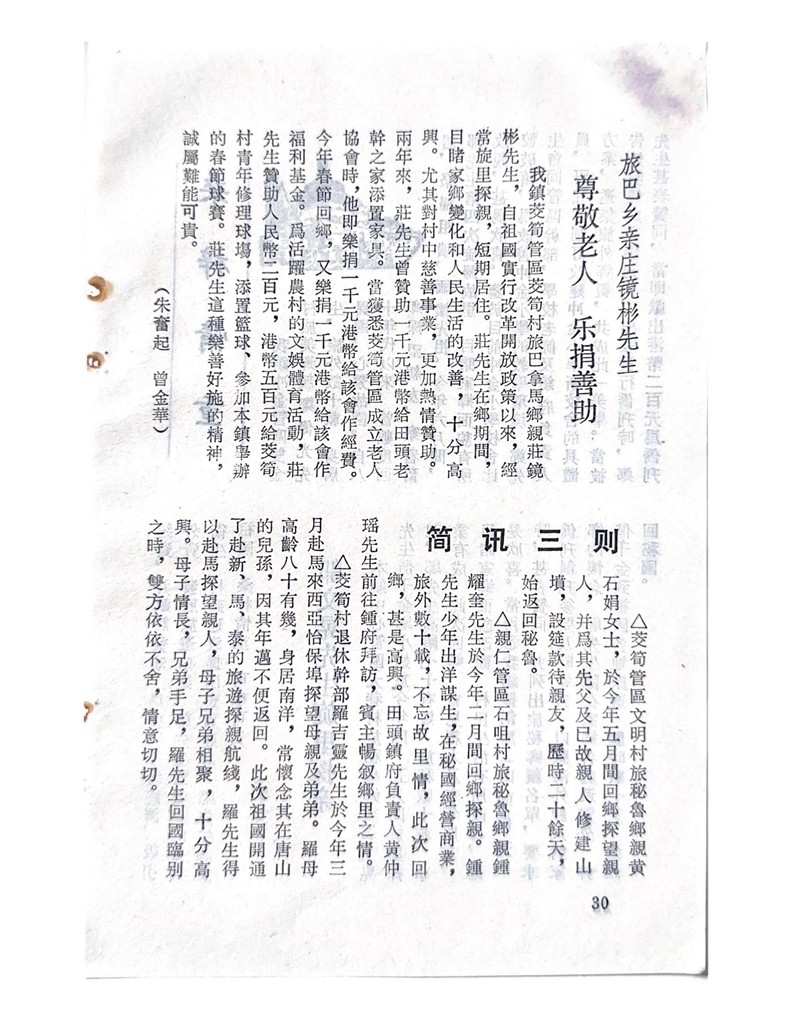 旅巴乡亲庄镜彬先生
尊敬老人　乐捐善助
我鎮茭筍管區茭筍村旅巴拿馬鄉親莊鏡
彬先生，自祖國實行改革開放政策以來，經
當旋里探親，短期居住。莊先生在鄉期間，
目睹家鄉變化和人民生活的改善，十分高
興。尤其對村中慈善事業，更加熱情贊助。
兩年來，莊先生曾贊助一千元港幣給田頭老
幹之家添置家具。當獲悉茭筍管區成立老人
協會時，他即樂捐一千元港幣給該會作經費。
今年春節回鄉，又樂捐一千元港幣給該會作
福利基金。爲活躍農村的文娛體育活動，莊
先生贊助人民幣二百元，港幣五百元給茭筍
村青年修理球塲，添置籃球、參加本鎮舉辦
的春節球賽。莊先生這種樂善好施的精神，
誠屬難能可貴。
（朱奮起　曾金華）
简讯三则
△茭筍管區文明村旅秘魯鄉親黄
石娟女士，於今年五月間回鄉探望親
人，并爲其先父及已故親人修建山
墳，設筵款待親友，歷時二十餘天，
始返回秘魯。
△親仁管區石咀村旅秘魯鄉親鍾
耀奎先生於今年二月間回鄉探親。鍾
先生少年出洋謀生，在秘國經營商業，
旅外數十載，不忘故里情，此次回
鄉，甚是高興。田頭鎮府負責人黄仲
瑶先生前往鍾府拜訪，賓主暢叙鄉里之情。
△茭筍村退休幹部羅吉靈先生於今年三
月赴馬來西亞怡保埠探望母親及弟弟。羅母
高齡八十有幾，身居南洋，常懷念其在唐山
的兒孫，因其年邁不便返回。此次祖國開通
了赴新、馬、泰的旅遊探親航綫，羅先生得
以赴馬探望親人，母子兄弟相聚，十分高
興。母子情長，兄弟手足，羅先生回國臨別
之時，雙方依依不舍，情意切切。
30